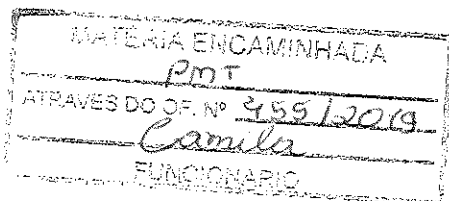 MATÉRIA ENCAMINHADA
PMT
ATRAVÉS DO OF. Nº 455/2019
Camila
FUNCIONÁRIO